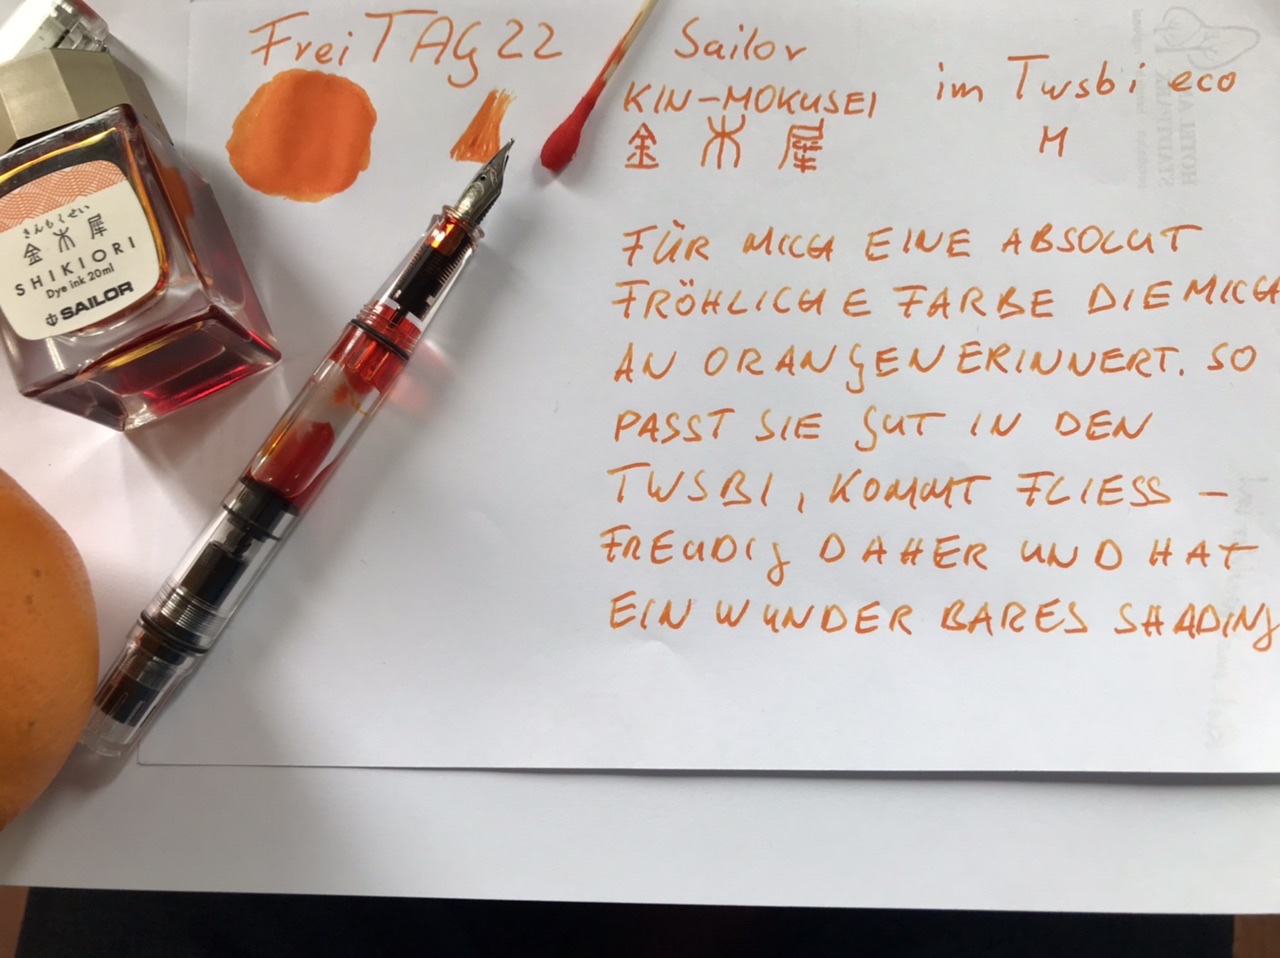 FreiTAG 22
Sailor
KIN-MOKUSEI
金木犀
im Twsbi eco
M
FÜR MICH EINE ABSOLUT
FRÖHLICHE FARBE DIE MICH
AN ORANGEN ERINNERT. SO
PASST SIE GUT IN DEN
TWSBI, KOMMT FLIESS-
FREUDIG DAHER UND HAT
EIN WUNDERBARES SHADING
きんもくせい
金木犀
SHIKIORI
Dye ink 20ml
SAILOR